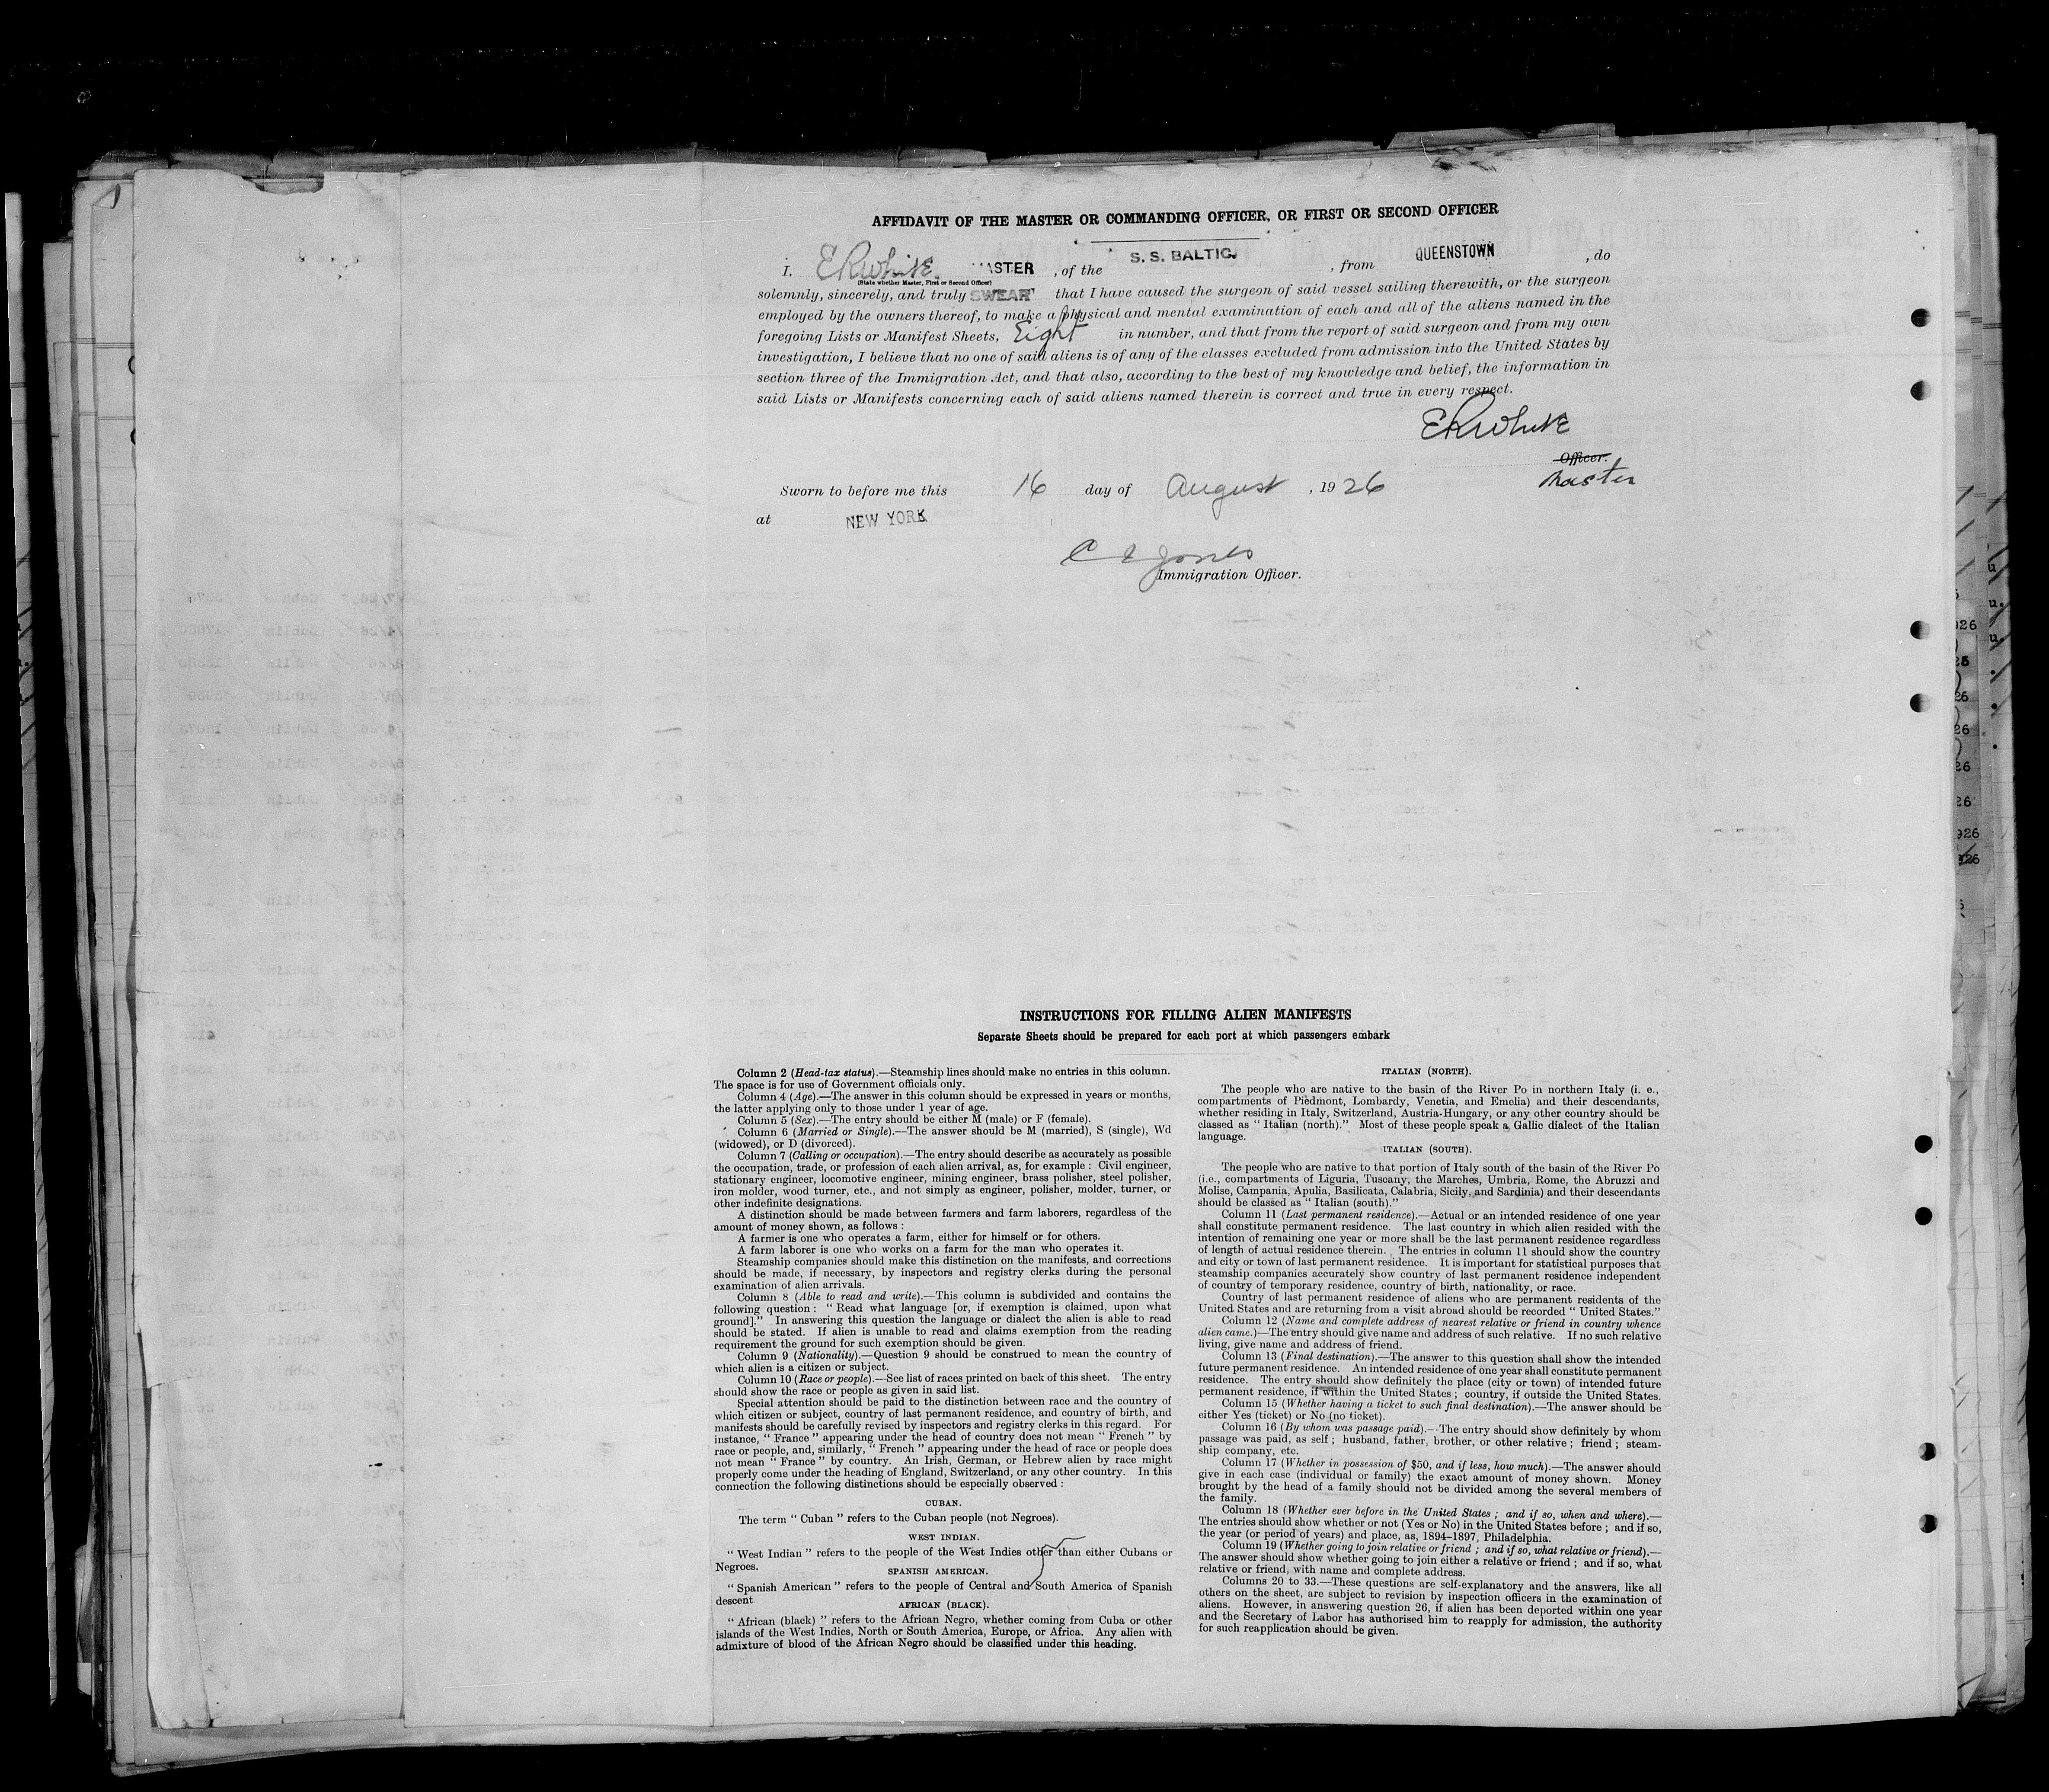 AFFIDAVIT OF THE MASTER OR COMMANDING OFFICER, OR FIRST OR SECOND OFFICER
I, E R White MASTER , of the S. S. BALTIC. , from QUEENSTOWN , do
(State whether Master, First or Second Officer)
solemnly, sincerely, and truly SWEAR that I have caused the surgeon of said vessel sailing therewith, or the surgeon
employed by the owners thereof, to make a physical and mental examination of each and all of the aliens named in the
foregoing Lists or Manifest Sheets, Eight in number, and that from the report of said surgeon and from my own
investigation, I believe that no one of said aliens is of any of the classes excluded from admission into the United States by
section three of the Immigration Act, and that also, according to the best of my knowledge and belief, the information in
said Lists or Manifests concerning each of said aliens named therein is correct and true in every respect.
E R White
Officer.
Master
Sworn to before me this 16 day of August , 1926
at NEW YORK
C E Jones
Immigration Officer.
INSTRUCTIONS FOR FILLING ALIEN MANIFESTS
Separate Sheets should be prepared for each port at which passengers embark
Column 2 (Head-tax status).—Steamship lines should make no entries in this column.
The space is for use of Government officials only.
Column 4 (Age).—The answer in this column should be expressed in years or months,
the latter applying only to those under 1 year of age.
Column 5 (Sex).—The entry should be either M (male) or F (female).
Column 6 (Married or Single).—The answer should be M (married), S (single), Wd
(widowed), or D (divorced).
Column 7 (Calling or occupation).—The entry should describe as accurately as possible
the occupation, trade, or profession of each alien arrival, as, for example : Civil engineer,
stationary engineer, locomotive engineer, mining engineer, brass polisher, steel polisher,
iron molder, wood turner, etc., and not simply as engineer, polisher, molder, turner, or
other indefinite designations.
A distinction should be made between farmers and farm laborers, regardless of the
amount of money shown, as follows :
A farmer is one who operates a farm, either for himself or for others.
A farm laborer is one who works on a farm for the man who operates it.
Steamship companies should make this distinction on the manifests, and corrections
should be made, if necessary, by inspectors and registry clerks during the personal
examination of alien arrivals.
Column 8 (Able to read and write).—This column is subdivided and contains the
following question : “ Read what language [or, if exemption is claimed, upon what
ground].” In answering this question the language or dialect the alien is able to read
should be stated. If alien is unable to read and claims exemption from the reading
requirement the ground for such exemption should be given.
Column 9 (Nationality).—Question 9 should be construed to mean the country of
which alien is a citizen or subject.
Column 10 (Race or people).—See list of races printed on back of this sheet. The entry
should show the race or people as given in said list.
Special attention should be paid to the distinction between race and the country of
which citizen or subject, country of last permanent residence, and country of birth, and
manifests should be carefully revised by inspectors and registry clerks in this regard. For
instance, “ France ” appearing under the head of country does not mean “ French ” by
race or people, and, similarly, “ French ” appearing under the head of race or people does
not mean “ France ” by country. An Irish, German, or Hebrew alien by race might
properly come under the heading of England, Switzerland, or any other country. In this
connection the following distinctions should be especially observed :
CUBAN.
The term “ Cuban ” refers to the Cuban people (not Negroes).
WEST INDIAN.
“ West Indian ” refers to the people of the West Indies other than either Cubans or
Negroes.
SPANISH AMERICAN.
“ Spanish American ” refers to the people of Central and South America of Spanish
descent
AFRICAN (BLACK).
“ African (black) ” refers to the African Negro, whether coming from Cuba or other
islands of the West Indies, North or South America, Europe, or Africa. Any alien with
admixture of blood of the African Negro should be classified under this heading.
ITALIAN (NORTH).
The people who are native to the basin of the River Po in northern Italy (i. e.,
compartments of Piedmont, Lombardy, Venetia, and Emelia) and their descendants,
whether residing in Italy, Switzerland, Austria-Hungary, or any other country should be
classed as “ Italian (north).” Most of these people speak a Gallic dialect of the Italian
language.
ITALIAN (SOUTH).
The people who are native to that portion of Italy south of the basin of the River Po
(i.e., compartments of Liguria, Tuscany, the Marches, Umbria, Rome, the Abruzzi and
Molise, Campania, Apulia, Basilicata, Calabria, Sicily, and Sardinia) and their descendants
should be classed as “ Italian (south).”
Column 11 (Last permanent residence).—Actual or an intended residence of one year
shall constitute permanent residence. The last country in which alien resided with the
intention of remaining one year or more shall be the last permanent residence regardless
of length of actual residence therein. The entries in column 11 should show the country
and city or town of last permanent residence. It is important for statistical purposes that
steamship companies accurately show country of last permanent residence independent
of country of temporary residence, country of birth, nationality, or race.
Country of last permanent residence of aliens who are permanent residents of the
United States and are returning from a visit abroad should be recorded “ United States.”
Column 12 (Name and complete address of nearest relative or friend in country whence
alien came.)—The entry should give name and address of such relative. If no such relative
living, give name and address of friend.
Column 13 (Final destination).—The answer to this question shall show the intended
future permanent residence. An intended residence of one year shall constitute permanent
residence. The entry should show definitely the place (city or town) of intended future
permanent residence, if within the United States ; country, if outside the United States.
Column 15 (Whether having a ticket to such final destination).—The answer should be
either Yes (ticket) or No (no ticket).
Column 16 (By whom was passage paid).—The entry should show definitely by whom
passage was paid, as self ; husband, father, brother, or other relative ; friend ; steam-
ship company, etc.
Column 17 (Whether in possession of $50, and if less, how much).—The answer should
give in each case (individual or family) the exact amount of money shown. Money
brought by the head of a family should not be divided among the several members of
the family.
Column 18 (Whether ever before in the United States ; and if so, when and where).—
The entries should show whether or not (Yes or No) in the United States before ; and if so,
the year (or period of years) and place, as, 1894–1897, Philadelphia.
Column 19 (Whether going to join relative or friend ; and if so, what relative or friend).—
The answer should show whether going to join either a relative or friend ; and if so, what
relative or friend, with name and complete address.
Columns 20 to 33.—These questions are self-explanatory and the answers, like all
others on the sheet, are subject to revision by inspection officers in the examination of
aliens. However, in answering question 26, if alien has been deported within one year
and the Secretary of Labor has authorised him to reapply for admission, the authority
for such reapplication should be given.